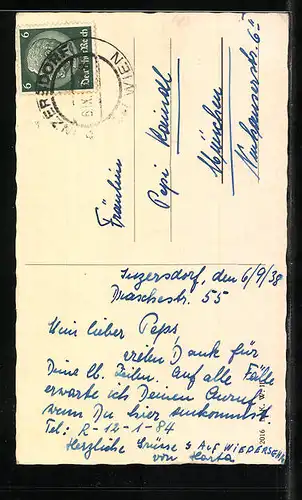 6 Deutsches Reich 6
INZERSDORF
WIEN
Fräulein
Pepi
München
6
Inzersdorf, den 6/9/38
Draschestr. 55
Mein lieber Pepi,
vielen Dank für
Deine lb. Zeilen. Auf alle Fälle
erwarte ich Deinen Anruf
wenn Du hier ankommst.
Tel: R-12-1-84
Herzliche Grüsse & AUF WIEDERSEHN
von Herta
2016